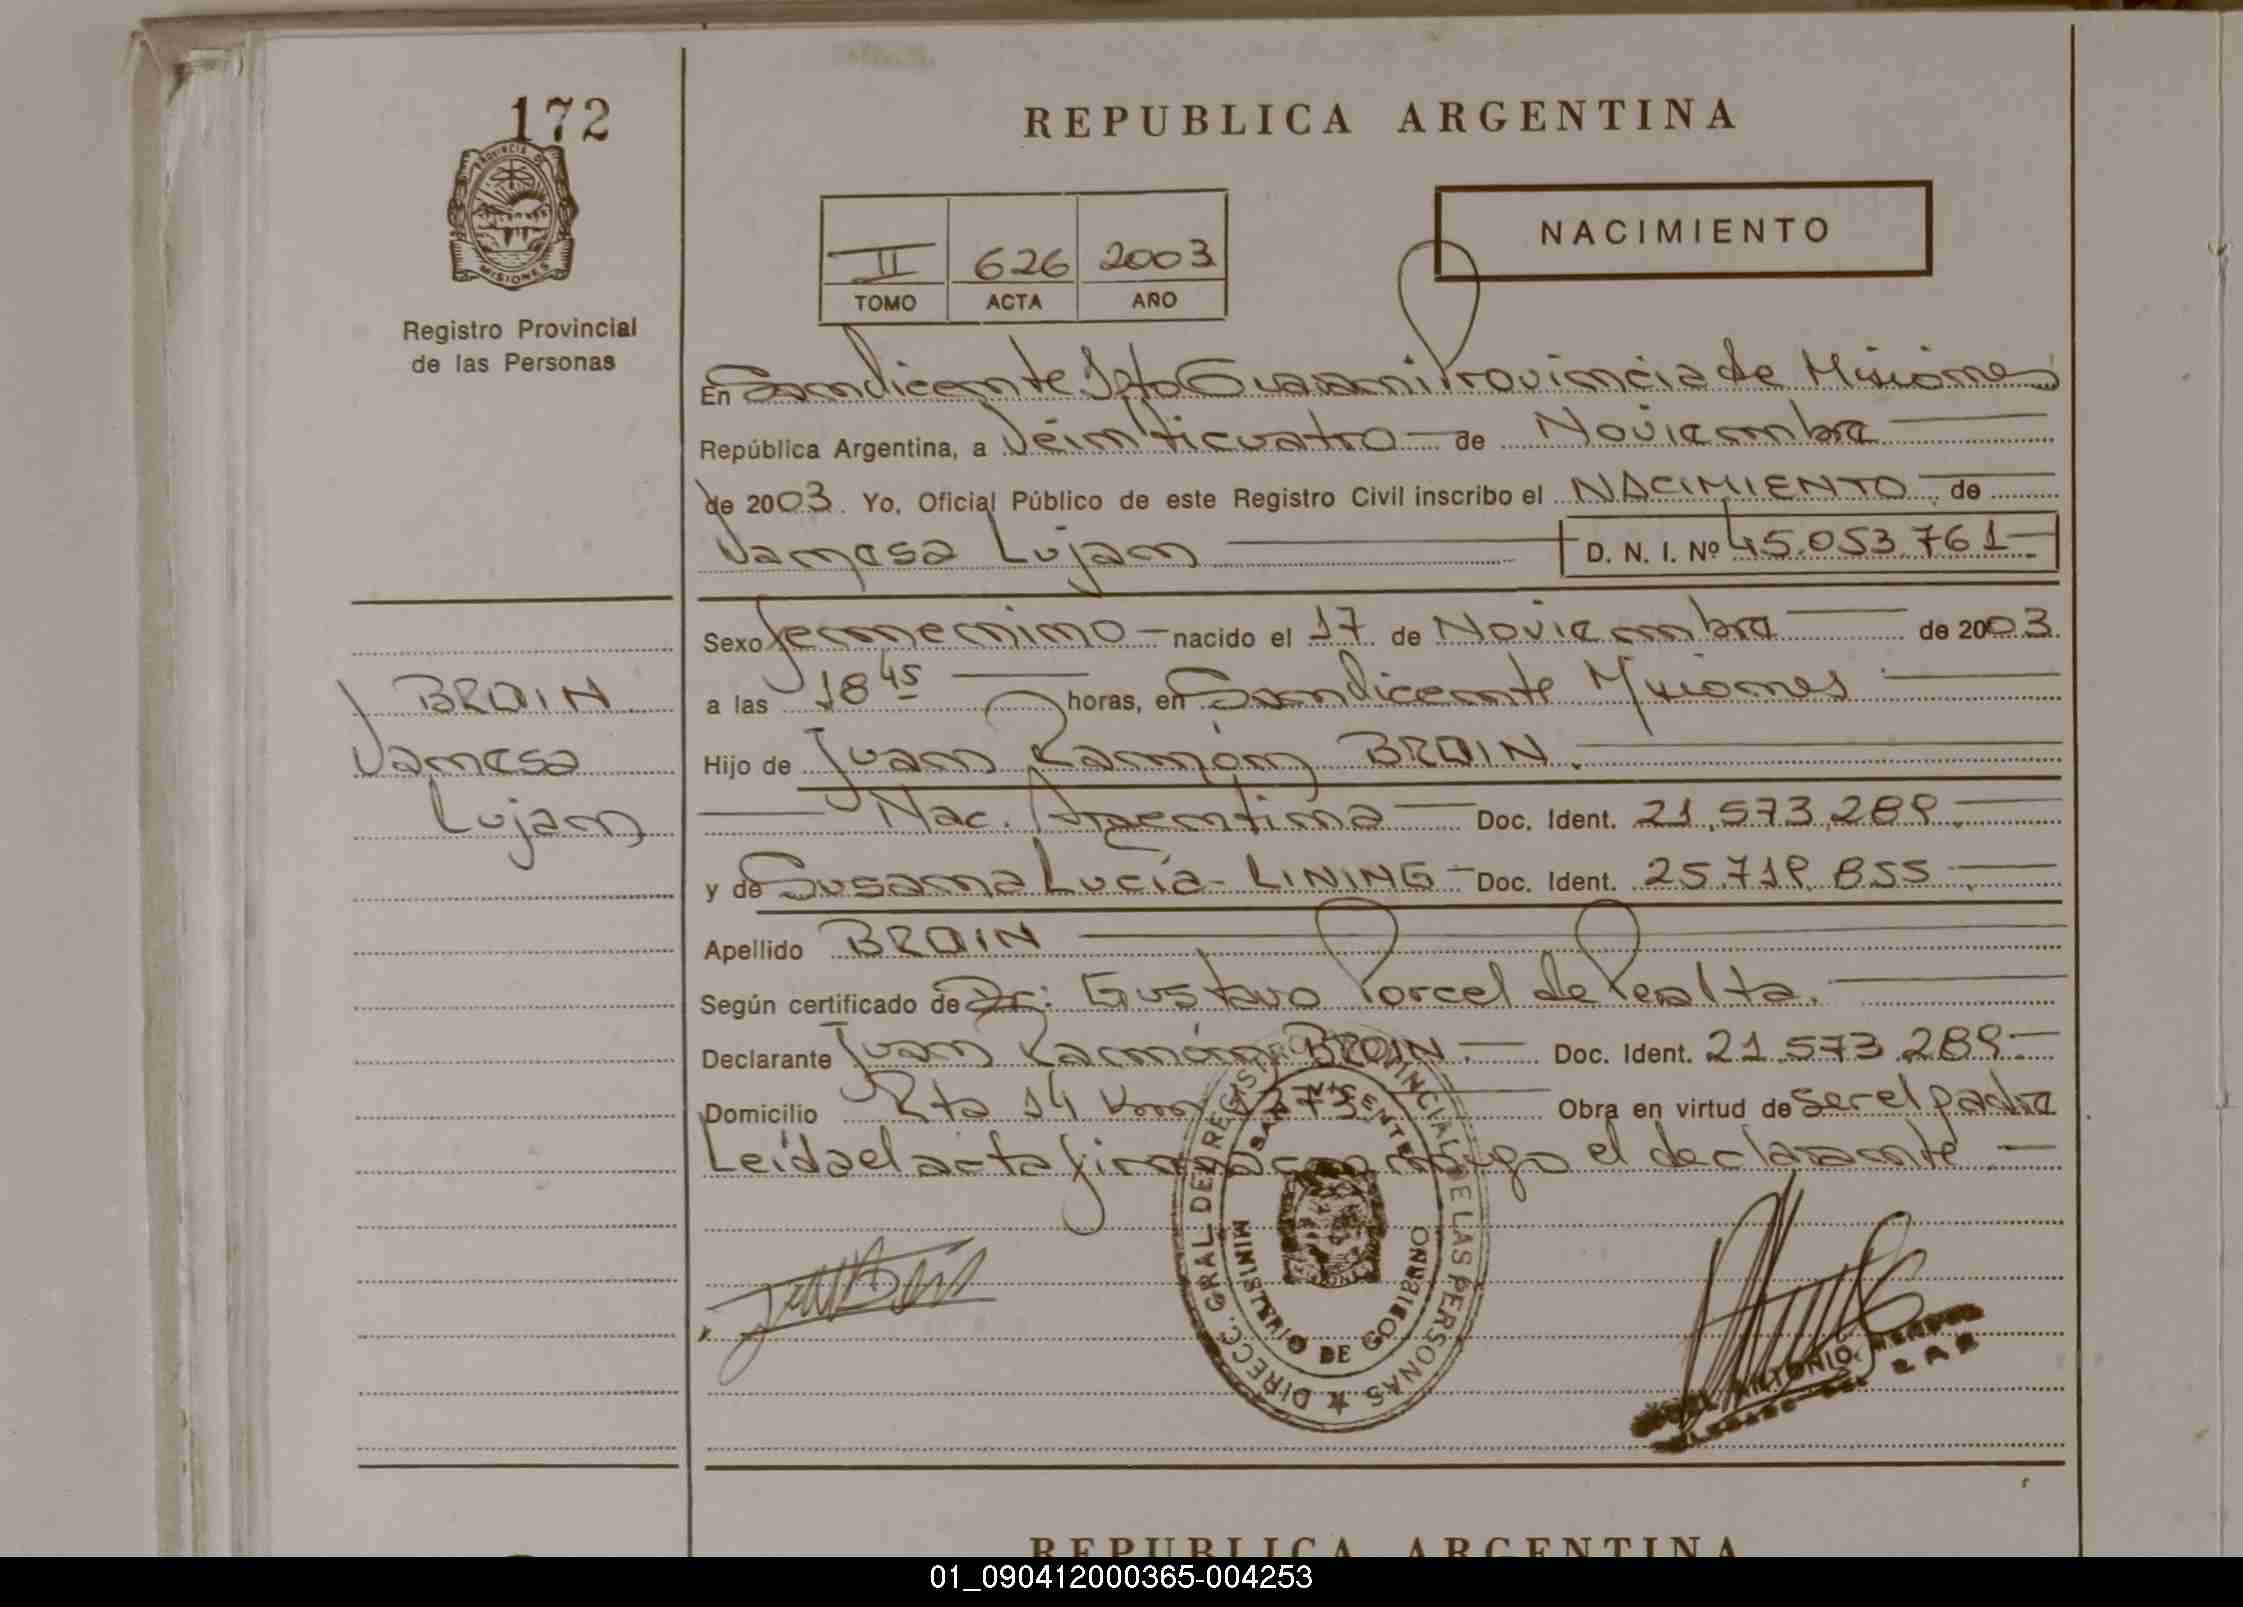 172
PROVINCIA DE
MISIONES
Registro Provincial
de las Personas
REPUBLICA ARGENTINA
NACIMIENTO
II 626 2003
TOMO ACTA AÑO
En San Vicente Dpto Guaraní Provincia de Misiones
República Argentina, a Veinticuatro de Noviembre
de 2003. Yo, Oficial Público de este Registro Civil inscribo el NACIMIENTO de
Vanesa Lujan D. N. I. Nº 45.053.761
Sexo femenino nacido el 17 de Noviembre de 2003.
a las 18 45 horas, en San Vicente Misiones
Hijo de Juan Ramón BROIN.
Nac. Argentina Doc. Ident. 21.573.289.
y de Susana Lucía LINING Doc. Ident. 25.719.855
Apellido BROIN
Según certificado de Dr: Gustavo Porcel de Peralta.
Declarante Juan Ramón BROIN. Doc. Ident. 21.573.289
Domicilio Rta 14 Km Obra en virtud de ser el padre
Leída el acta firma conmigo el declarante
BROIN
Vanesa
Lujan
DIRECC. GRAL. DEL REGIST. PROVINCIAL DE LAS PERSONAS
SAN VICENTE
MINISTERIO DE GOBIERNO
ANTONIO
REPUBLICA ARGENTINA
01_090412000365-004253